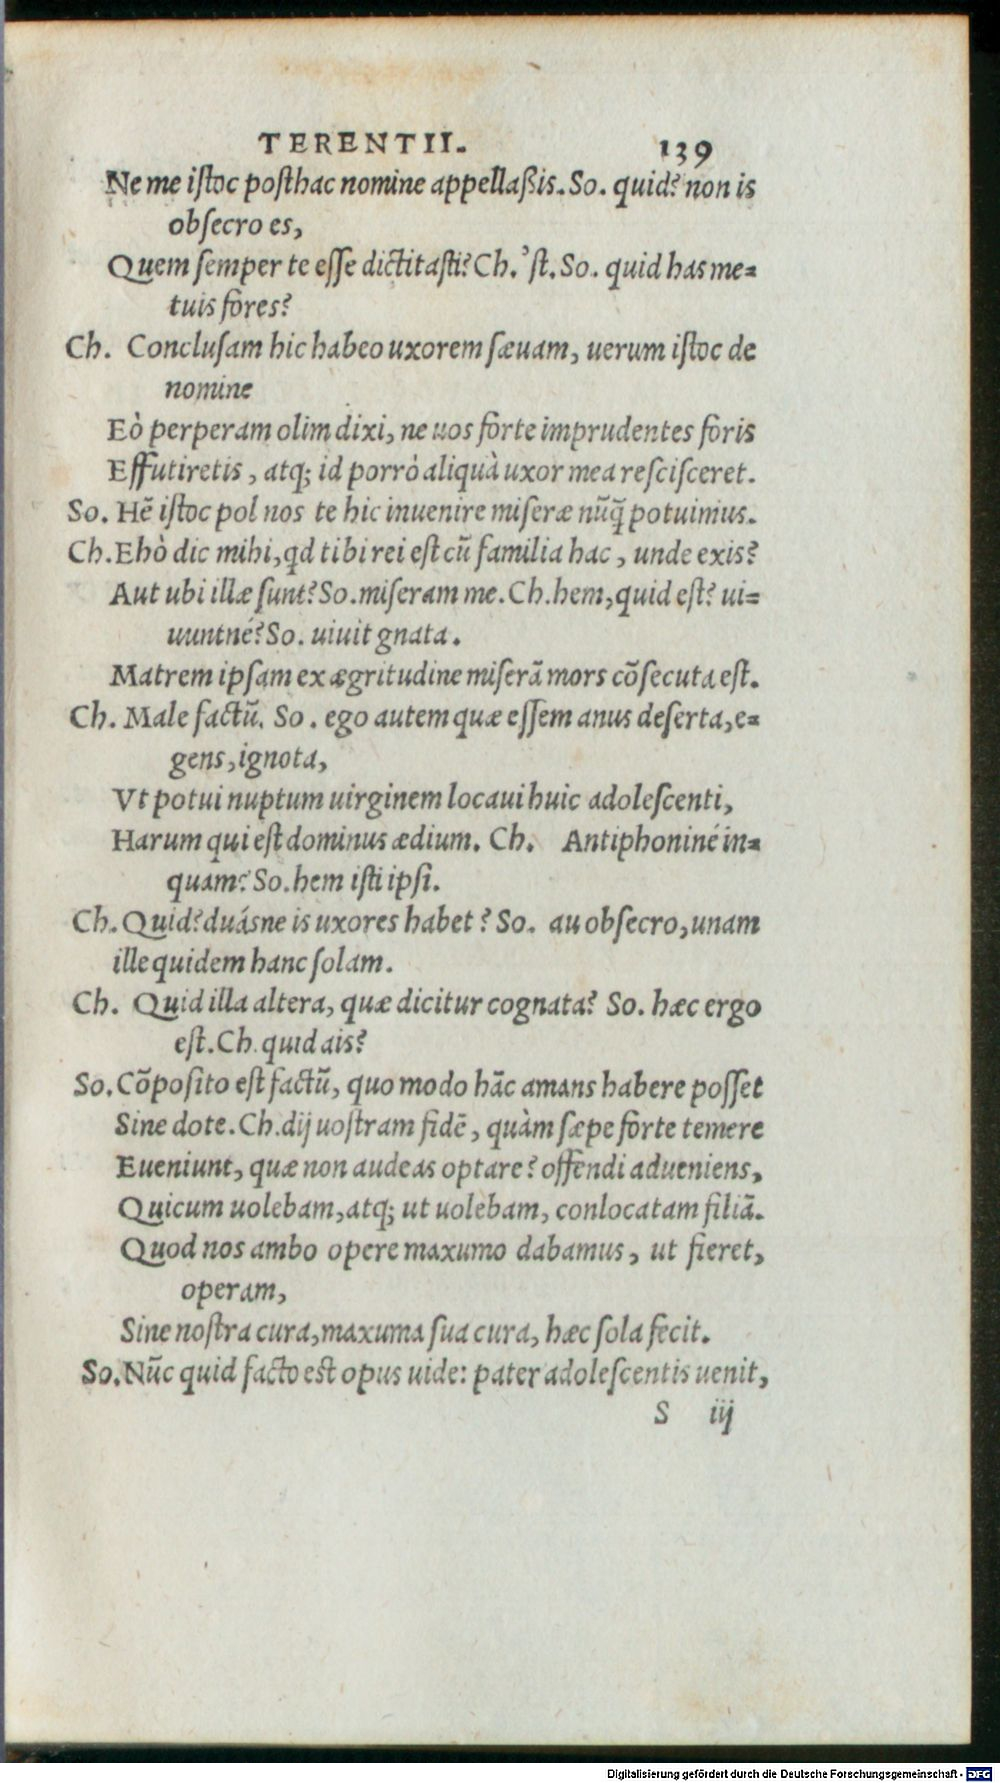 TERENTII. 139
Ne me iſtoc poſthac nomine appellaßis. So. quid? non is
obſecro es,
Quem ſemper te eſſe dictitaſti? Ch. 'ſt. So. quid has me=
tuis fores?
Ch. Concluſam hic habeo uxorem ſæuam, uerum iſtoc de
nomine
Eò perperam olim dixi, ne uos forte imprudentes foris
Effutiretis, atq; id porrò aliquà uxor mea reſciſceret.
So. Hē iſtoc pol nos te hic inuenire miſeræ nūq̃ potuimus.
Ch. Ehò dic mihi, qd tibi rei eſt cū familia hac, unde exis?
Aut ubi illæ ſunt? So. miſeram me. Ch. hem, quid eſt? ui=
uuntné? So. uiuit gnata.
Matrem ipſam ex ægritudine miſerā mors cōſecuta eſt.
Ch. Male factū. So. ego autem quæ eſſem anus deſerta, e=
gens, ignota,
Vt potui nuptum uirginem locaui huic adoleſcenti,
Harum qui eſt dominus ædium. Ch. Antiphoniné in=
quam? So. hem iſti ipſi.
Ch. Quid? duásne is uxores habet? So. au obſecro, unam
ille quidem hanc ſolam.
Ch. Quid illa altera, quæ dicitur cognata? So. hæc ergo
eſt. Ch. quid ais?
So. Cōpoſito eſt factū, quo modo hāc amans habere poſſet
Sine dote. Ch. dij uoſtram fidē, quàm ſæpe forte temere
Eueniunt, quæ non audeas optare? offendi adueniens,
Quicum uolebam, atq; ut uolebam, conlocatam filiā.
Quod nos ambo opere maxumo dabamus, ut fieret,
operam,
Sine noſtra cura, maxuma ſua cura, hæc ſola fecit.
So. Nūc quid facto eſt opus uide: pater adoleſcentis uenit,
S iij
Digitalisierung gefördert durch die Deutsche Forschungsgemeinschaft - DFG